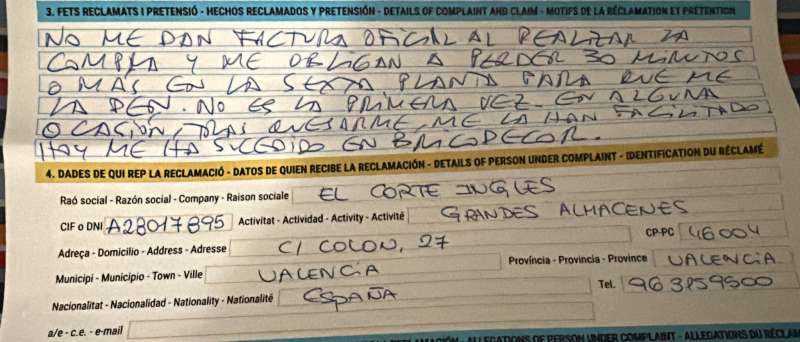 3. FETS RECLAMATS I PRETENSIÓ - HECHOS RECLAMADOS Y PRETENSIÓN - DETAILS OF COMPLAINT AND CLAIM - MOTIFS DE LA RÉCLAMATION ET PRÉTENTION
NO ME DAN FACTURA OFICIAL AL REALIZAR LA
COMPRA Y ME OBLIGAN A PERDER 30 MINUTOS
O MÁS EN LA SEXTA PLANTA PARA QUE ME
LA DEN. NO ES LA PRIMERA VEZ. EN ALGUNA
OCASIÓN, TRAS QUEJARME, ME LA HAN FACILITADO.
HOY ME HA SUCEDIDO EN BRICODECOR.
4. DADES DE QUI REP LA RECLAMACIÓ - DATOS DE QUIEN RECIBE LA RECLAMACIÓN - DETAILS OF PERSON UNDER COMPLAINT - IDENTIFICATION DU RÉCLAMÉ
Raó social - Razón social - Company - Raison sociale EL CORTE INGLES
CIF o DNI A28017895 Activitat - Actividad - Activity - Activité GRANDES ALMACENES
Adreça - Domicilio - Address - Adresse C/ COLON, 27 CP-PC 46004
Municipi - Municipio - Town - Ville VALENCIA Província - Provincia - Province VALENCIA
Nacionalitat - Nacionalidad - Nationality - Nationalité ESPAÑA Tel. 963159500
a/e - c.e. - e-mail
ALLEGATIONS OF PERSON UNDER COMPLAINT - ALLEGATIONS DU